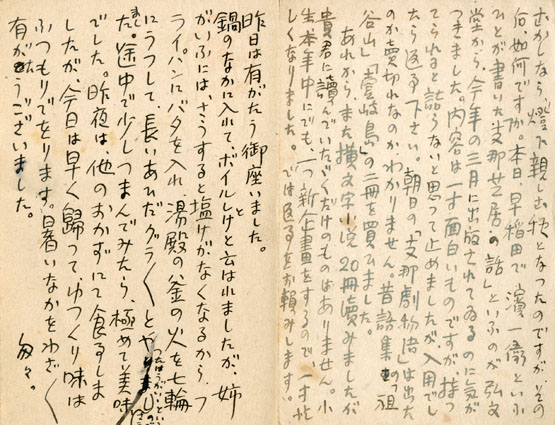 むかしなら、燈下親しむ秋となったのですが、その
后、如何ですか。本日、早稲田で、濱一衛といふ
ひとが書いた「支那芝居の話」といふのが弘文
堂から、今年の三月に出版されてゐるのに気が
つきました。内容は一寸面白いものですが、持つ
てられると詰らないと思って止めましたが、入用でし
たら返る下さい。朝日の「支那劇物語」は出た
のか賣切れなのかわかりません。昔語集の「祖
谷山」「壹岐島」の二冊を買ひました。
あれから、また横文字小説20冊讀みましたが、
貴君に讀んでいたゞくだけのものはありません。小
生本年中にでも、一つ新企畫をするので、一寸忙
しくなりました。では返るをお頼みします。
昨日は有がたう御座いました。
鍋のなかに入れて、ボイルしけと云はれましたが、姉
がいふには、さうすると塩けがなくなるから、フ
ライパンにバタを入れ、湯殿の釜の火を七輪
にうつして、長いあひだグラ〱とやりまし
つたはうがいゝといふので、さう
た。途中で少しつまんでみたら、極めて美味
でした。昨夜は、他のおかずにて食るしま
したが、今日は早く歸って、ゆっくり味は
ふつもりでをります。日暑いなかをわざ〱
有がたうございました。
匆々。